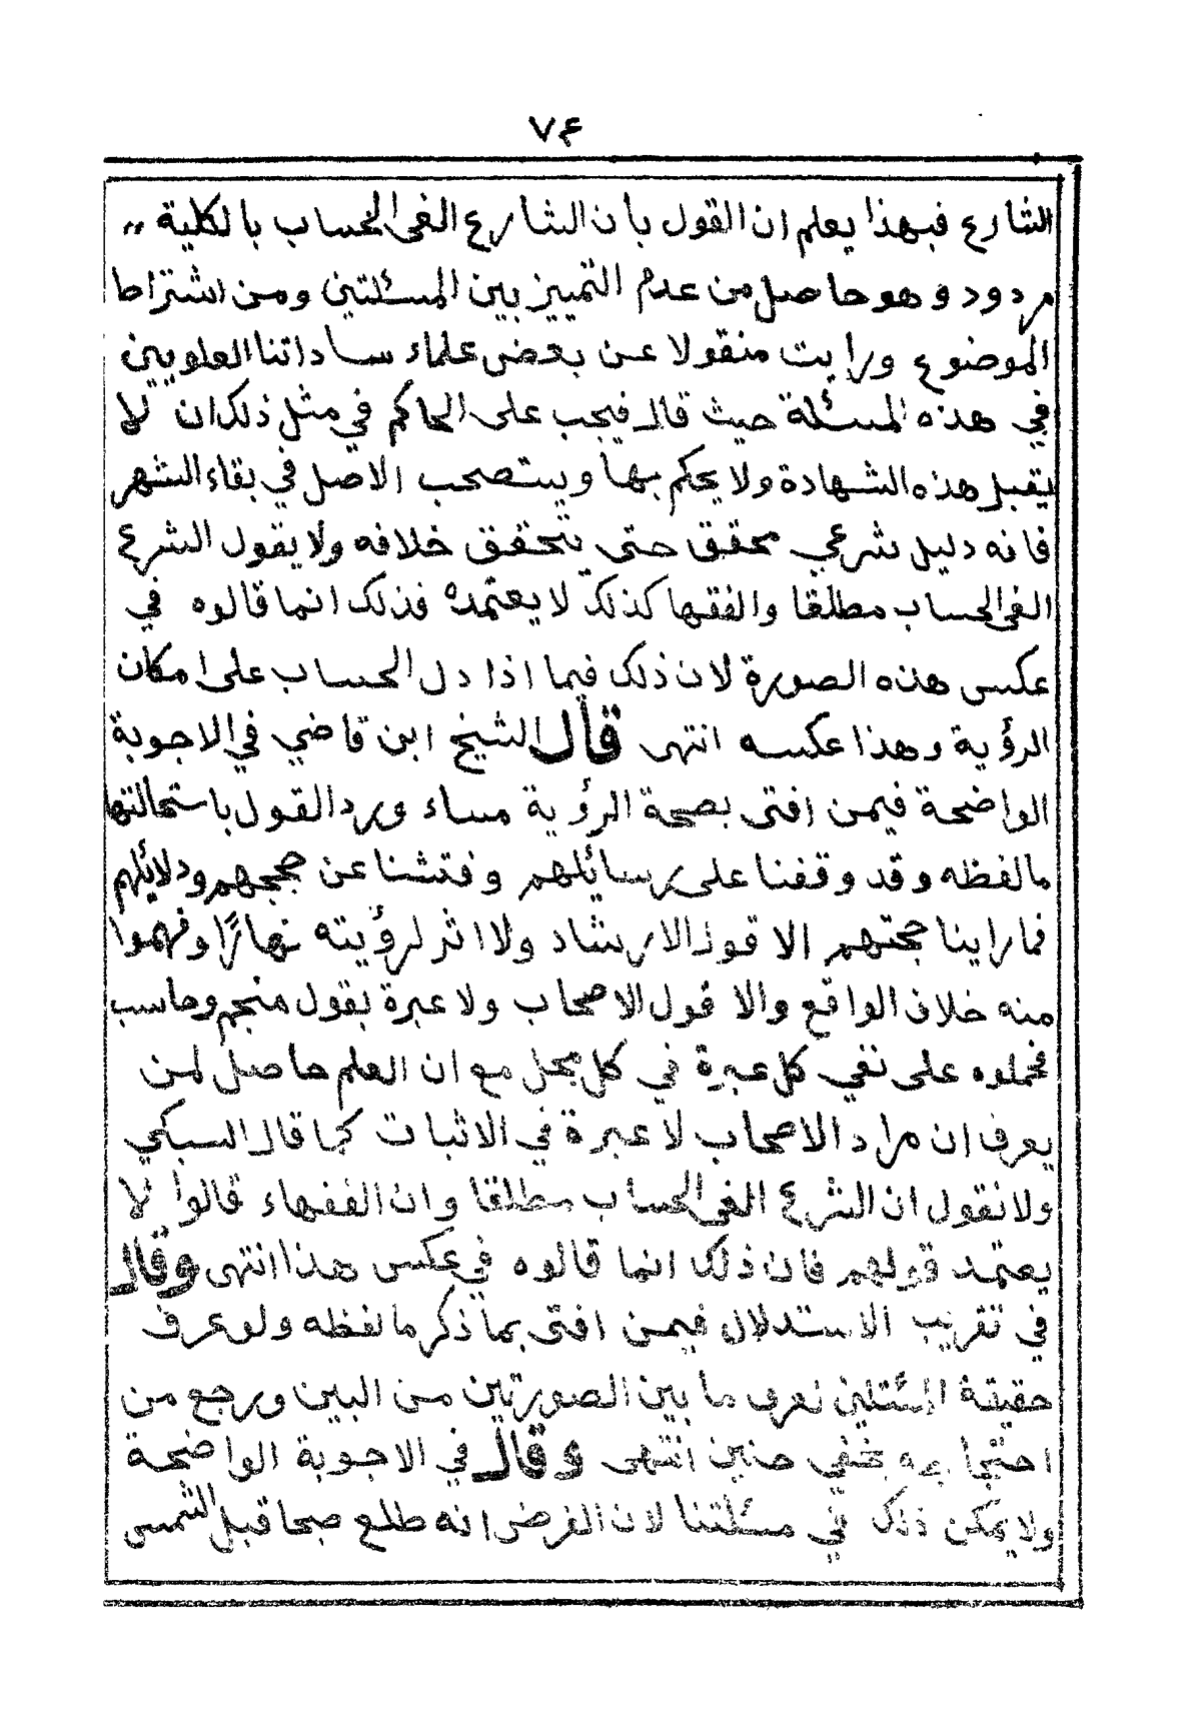 ٧٤
الشارع فبهذا يعلم ان القول بان الشارع الغى الحساب بالكلية ,,
مردود وهو حاصل من عدم التمييز بين المسئلتين ومن اشتراط
الموضوع ورايت منقولا عن بعض علماء ساداتنا العلويين
في هذه المسئلة حيث قال فيجب على الحاكم في مثل ذلك ان لا
يقبل هذه الشهادة ولا يحكم بها ويستصحب الاصل في بقاء الشهر
فانه دليل شرعي محقق حتى يتحقق خلافه ولا يقول الشرع
الغى الحساب مطلقا والفقها كذلك لا يعتمده فذلك انما قالوه في
عكس هذه الصورة لان ذلك فيما اذا دل الحساب على امكان
الرؤية وهذا عكسه انتهى قال الشيخ ابن قاضي في الاجوبة
الواضحة فيمن افتى بصحة الرؤية مساء ورد القول باستحالتها
مالفظه وقد وقفنا على رسائلهم وفتشنا عن حججهم ودلائلهم
فما راينا حجتهم الا قول الارشاد ولا اثر لرؤيته نهارًا وفهموا
منه خلاف الواقع والا قول الاصحاب ولا عبرة بقول منجم وحاسب
فحملوه على نفي كل عبرة في كل محل مع ان العلم حاصل لمن
يعرف ان مراد الاصحاب لا عبرة في الاثبات كما قال السبكي
ولا نقول ان الشرع الغى الحساب مطلقا وان الفقهاء قالوا لا
يعتمد قولهم فان ذلك انما قالوه في عكس هذا انتهى وقال
في تقريب الاستدلال فيمن افتى بما ذكر مالفظه ولو عرف
حقيقة المسئلتين لعرف ما بين الصورتين من البين ورجع من
احتجاجه بخفي حنين انتهى وقال في الاجوبة الواضحة
ولا يمكن ذلك في مسئلتنا لان الفرض انه طلع صبحا قبل الشمس